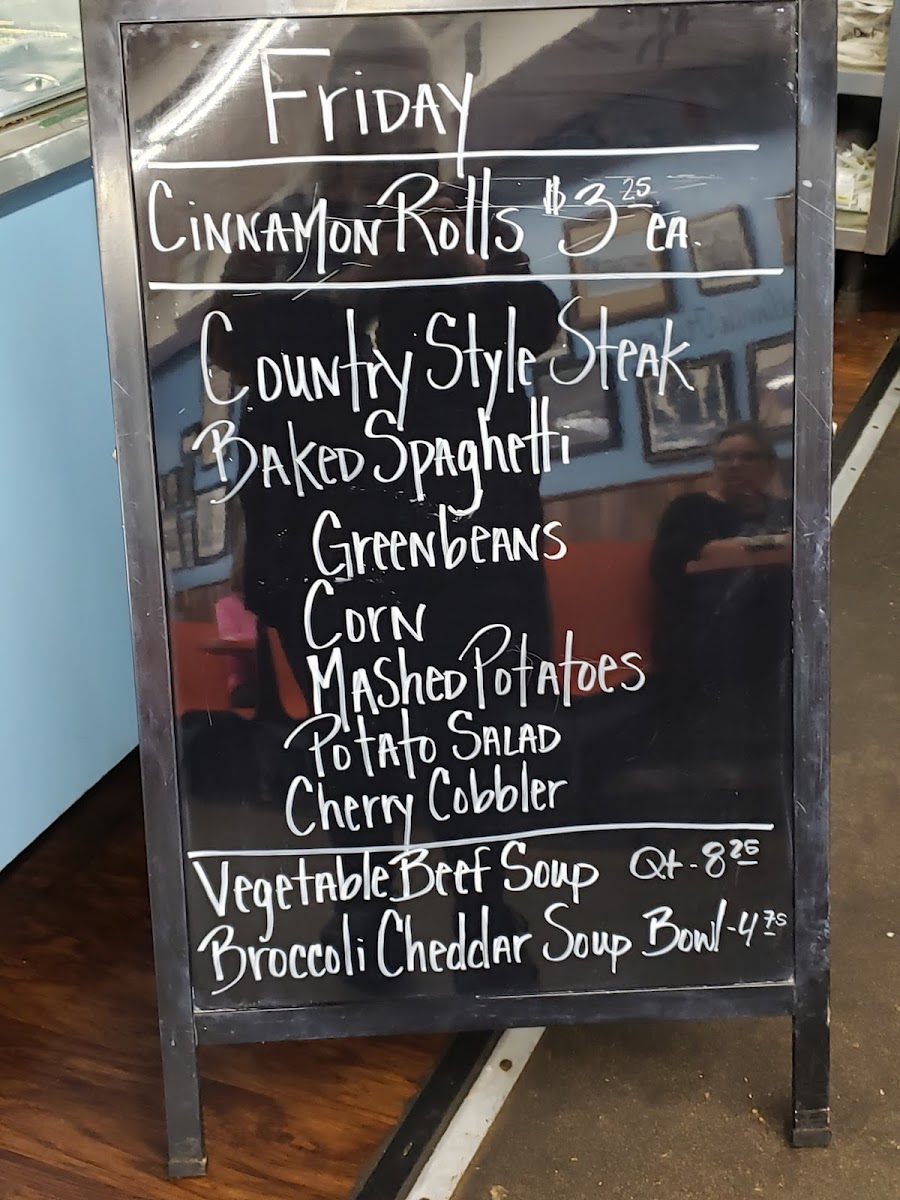 Friday
Cinnamon Rolls $3 25 ea.
Country Style Steak
Baked Spaghetti
Greenbeans
Corn
Mashed Potatoes
Potato Salad
Cherry Cobbler
Vegetable Beef Soup Qt-8 25
Broccoli Cheddar Soup Bowl-4 75